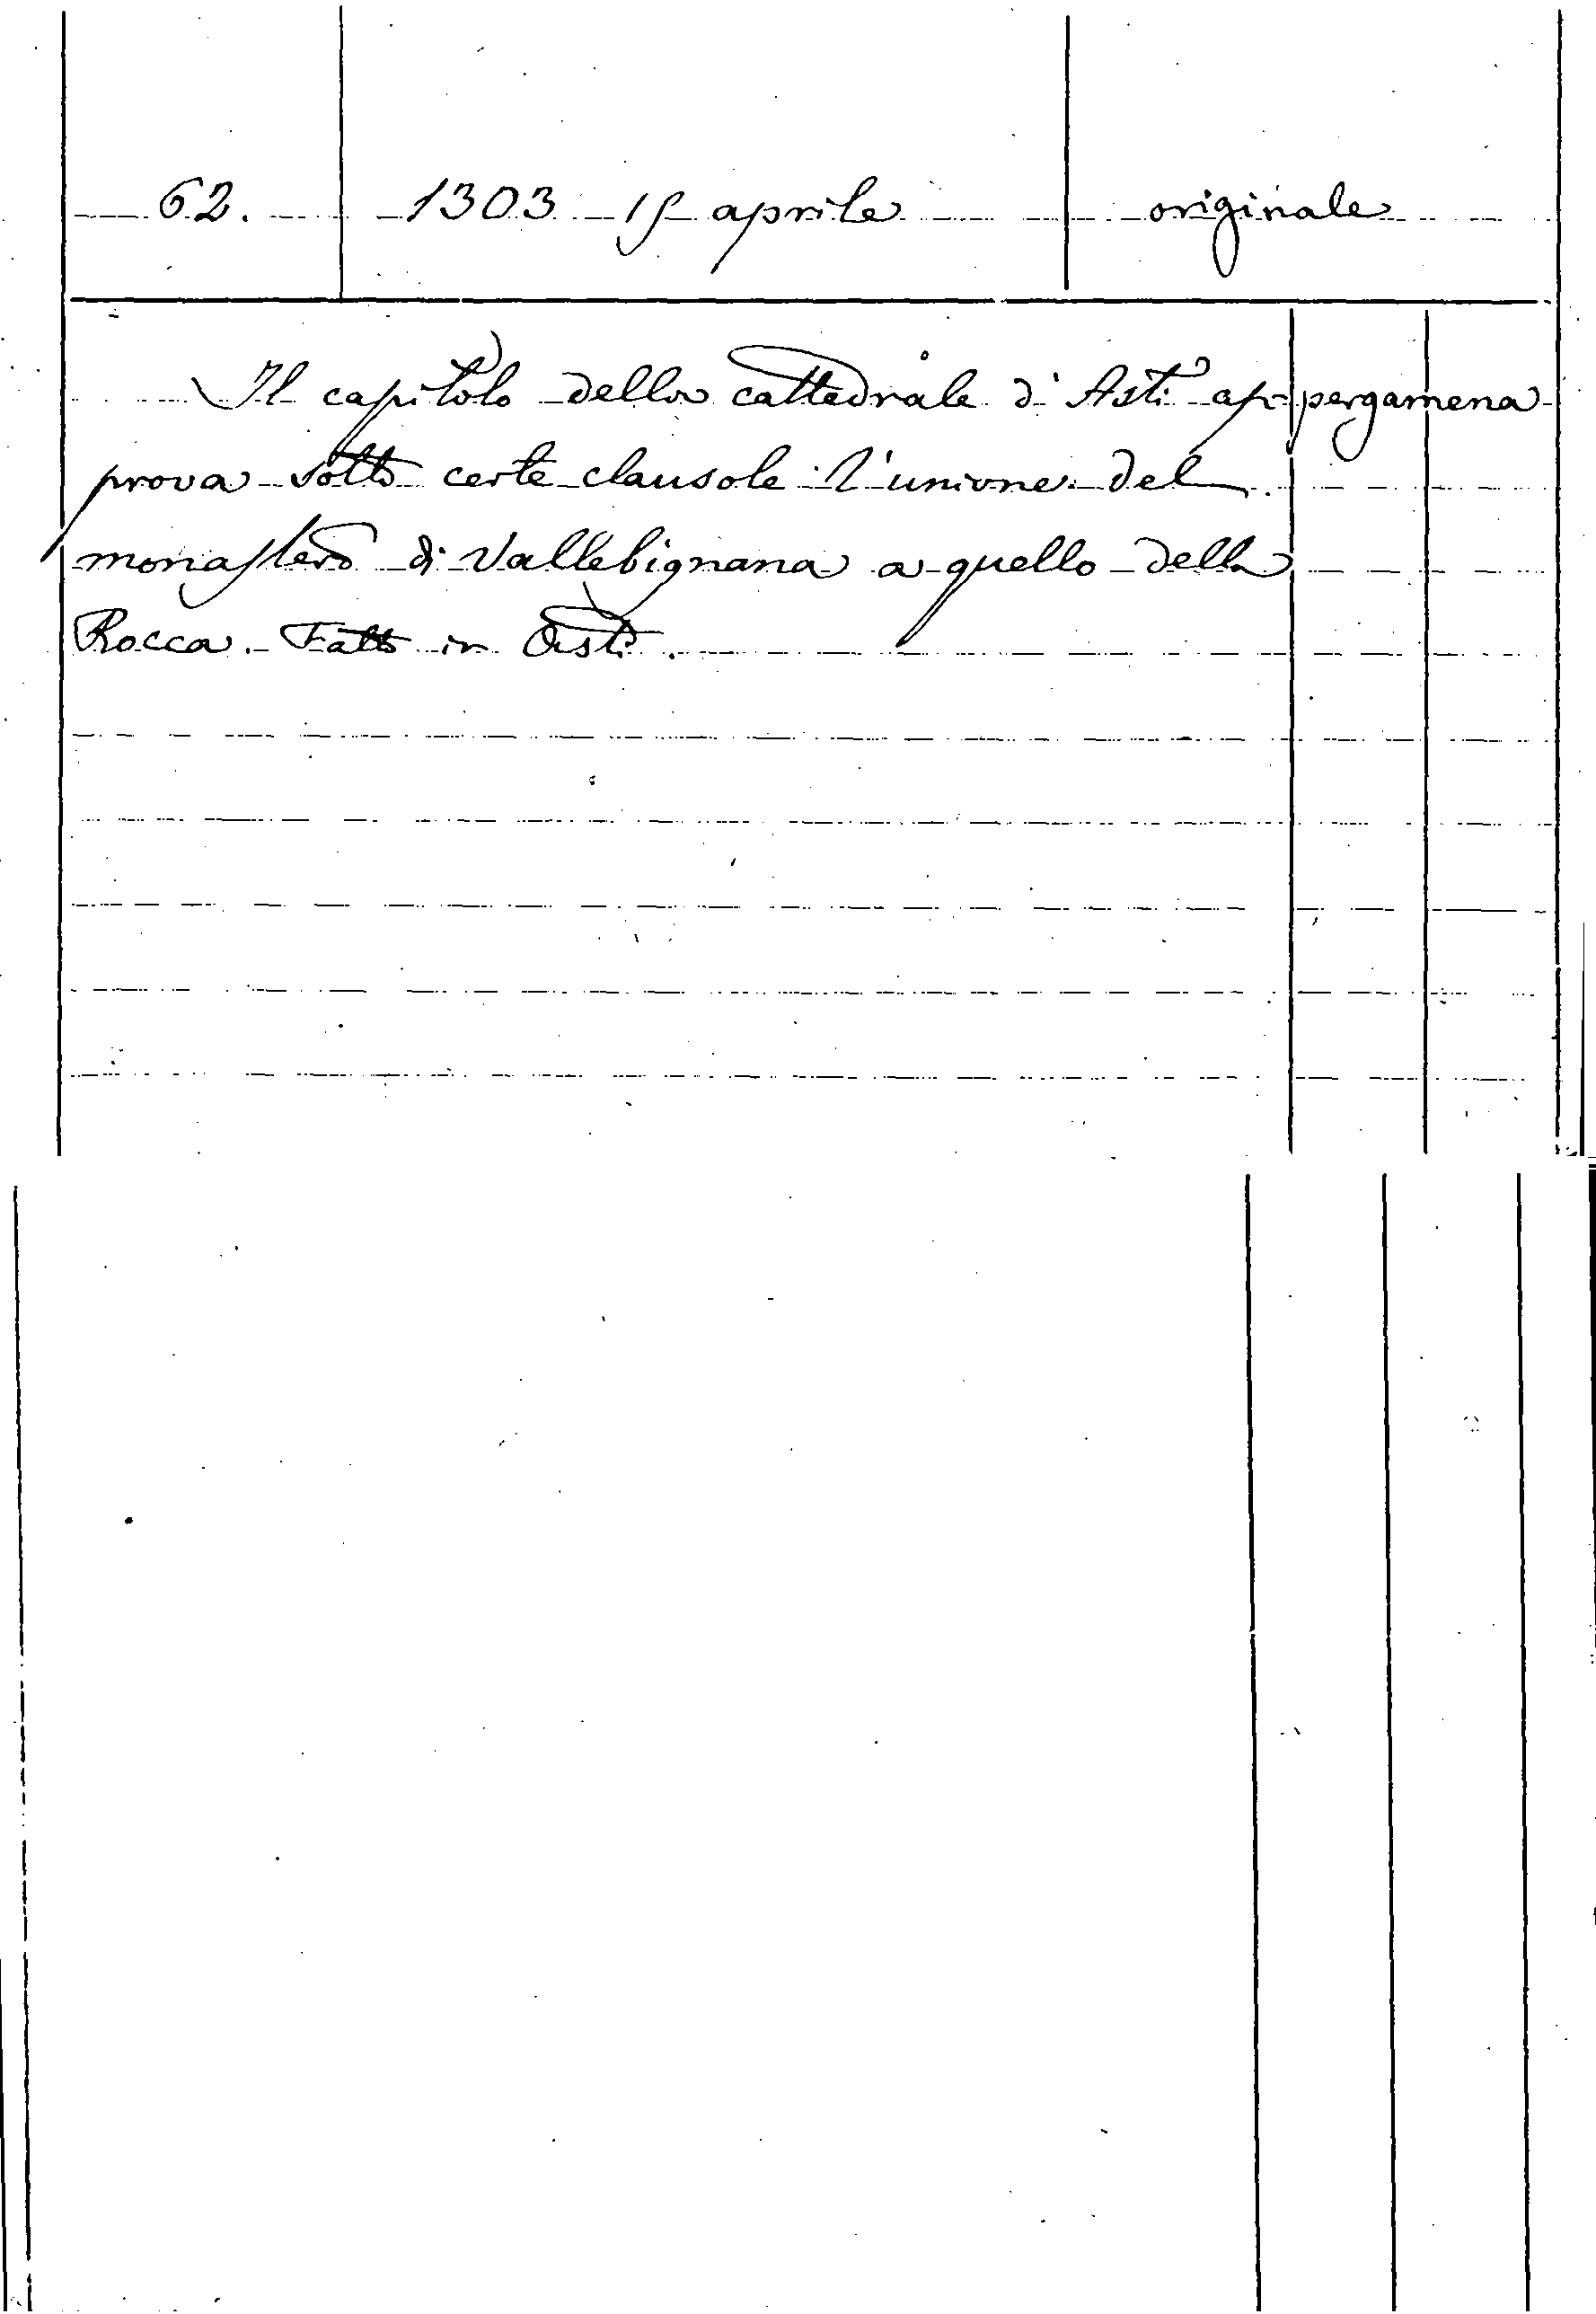 62. 1303 15 aprile originale
Il capitolo della cattedrale d'Asti ap- pergamena
prova sotto certe clausole l'unione del
monastero di Vallebignana a quello della
Rocca. Fatto in Asti.